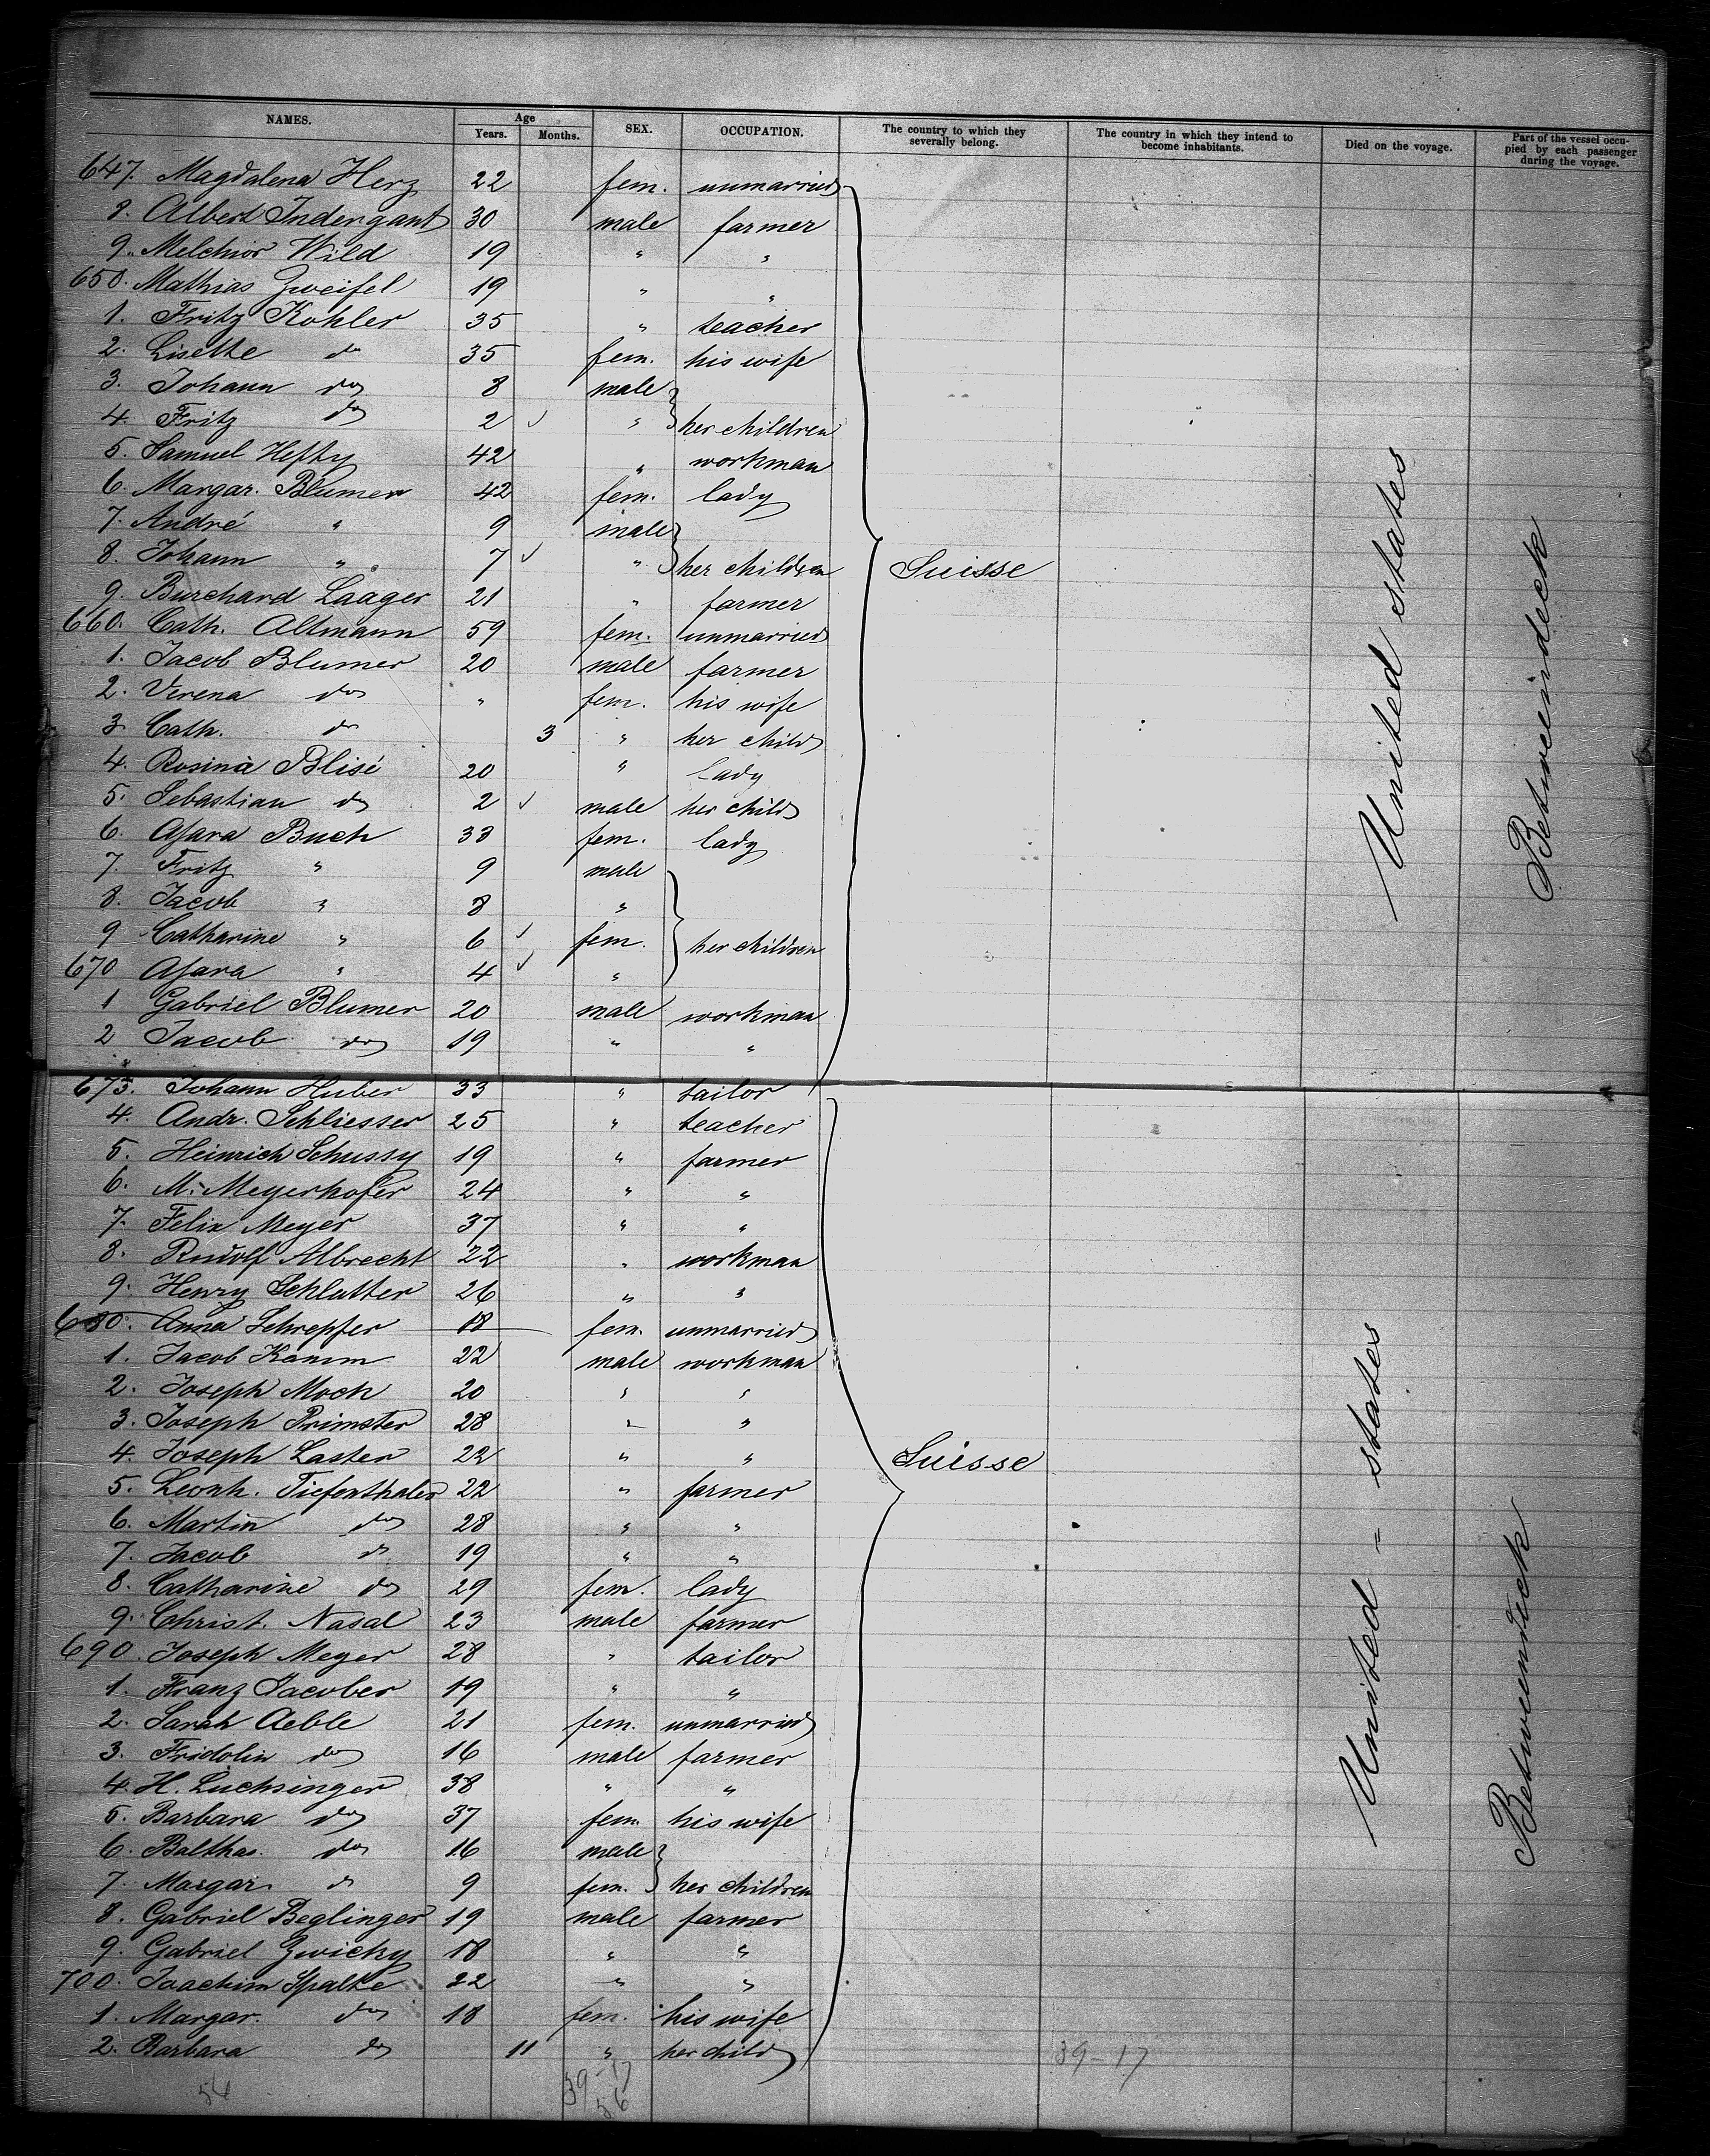 NAMES. Age Years. Months. SEX. OCCUPATION. The country to which they severally belong. The country in which they intend to become inhabitants. Died on the voyage. Part of the vessel occupied by each passenger during the voyage.
647. Magdalena Herz 22 fem. unmarried
8. Albert Indergant 30 male farmer
9. Melchior Wild 19 " "
650. Mathias Zweifel 19 " "
1. Fritz Kohler 35 " teacher
2. Lisette do 35 fem. his wife
3. Johann do 8 male
4. Fritz do 2 " her children
5. Samuel Hefty 42 " workman
6. Margar. Blumer 42 fem. lady
7. André " 9 male
8. Johann " 7 " her children Suisse United states Betweendeck
9. Burchard Laager 21 " farmer
660. Cath. Altmann 59 fem. unmarried
1. Jacob Blumer 20 male farmer
2. Verena do " fem. his wife
3. Cath. do 3 " her child
4. Rosina Blisé 20 " lady
5. Sebastian do 2 male her child
6. Afara Buch 33 fem. lady
7. Fritz " 9 male
8. Jacob " 8 "
9 Catharine " 6 fem. her children
670 Afara " 4 "
1 Gabriel Blumer 20 male workman
2 Jacob do 19 " "
673. Johann Huber 33 " tailor
4. Andr. Schliesser 25 " teacher
5. Heinrich Schussy 19 " farmer
6. M. Meyerhofer 24 " "
7. Felix Meyer 37 " "
8. Rudolf Albrecht 22 " workman
9. Henry Schlatter 26 " "
680. Anna Schrepfer 18 fem. unmarried
1. Jacob Kamm 22 male workman
2. Joseph Moch 20 " "
3. Joseph Primster 28 " "
4. Joseph Laster 22 " " Suisse United - states Betweendeck
5. Leonh. Tiefenthaler 22 " farmer
6. Martin do 28 " "
7. Jacob do 19 " "
8. Catharine do 29 fem. lady
9. Christ. Nadal 23 male farmer
690. Joseph Meyer 28 " tailor
1. Franz Jacober 19 " "
2. Sarah Aeble 21 fem. unmarried
3. Fridolin do 16 male farmer
4. H. Luchsinger 38 " "
5. Barbara do 37 fem. his wife
6. Balthas. do 16 male
7. Margar. do 9 fem. her children
8. Gabriel Beglinger 19 male farmer
9. Gabriel Zwicky 18 " "
700. Joachim Spalte 22 " "
1. Margar. do 18 fem. his wife
2. Barbara do 11 " her child 39-17
54 39-17
56